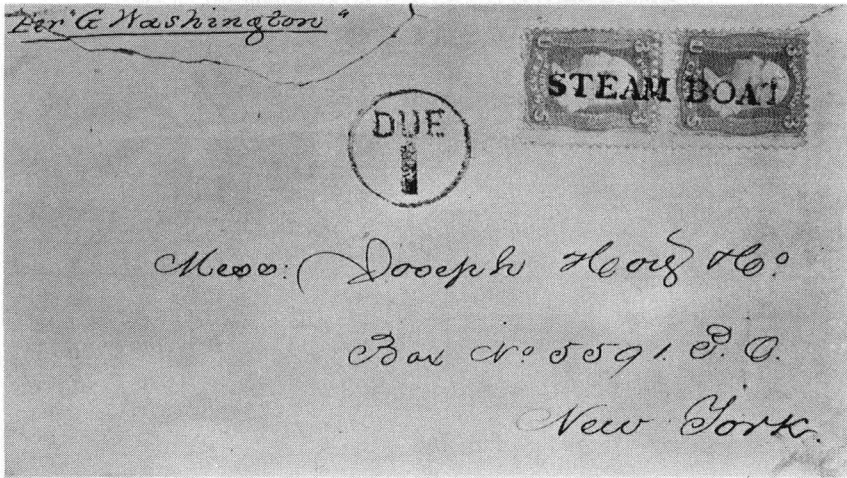 Per "G Washington"
STEAM BOAT
DUE
1
Mess: Joseph
Box No 5591. P. O.
New York.